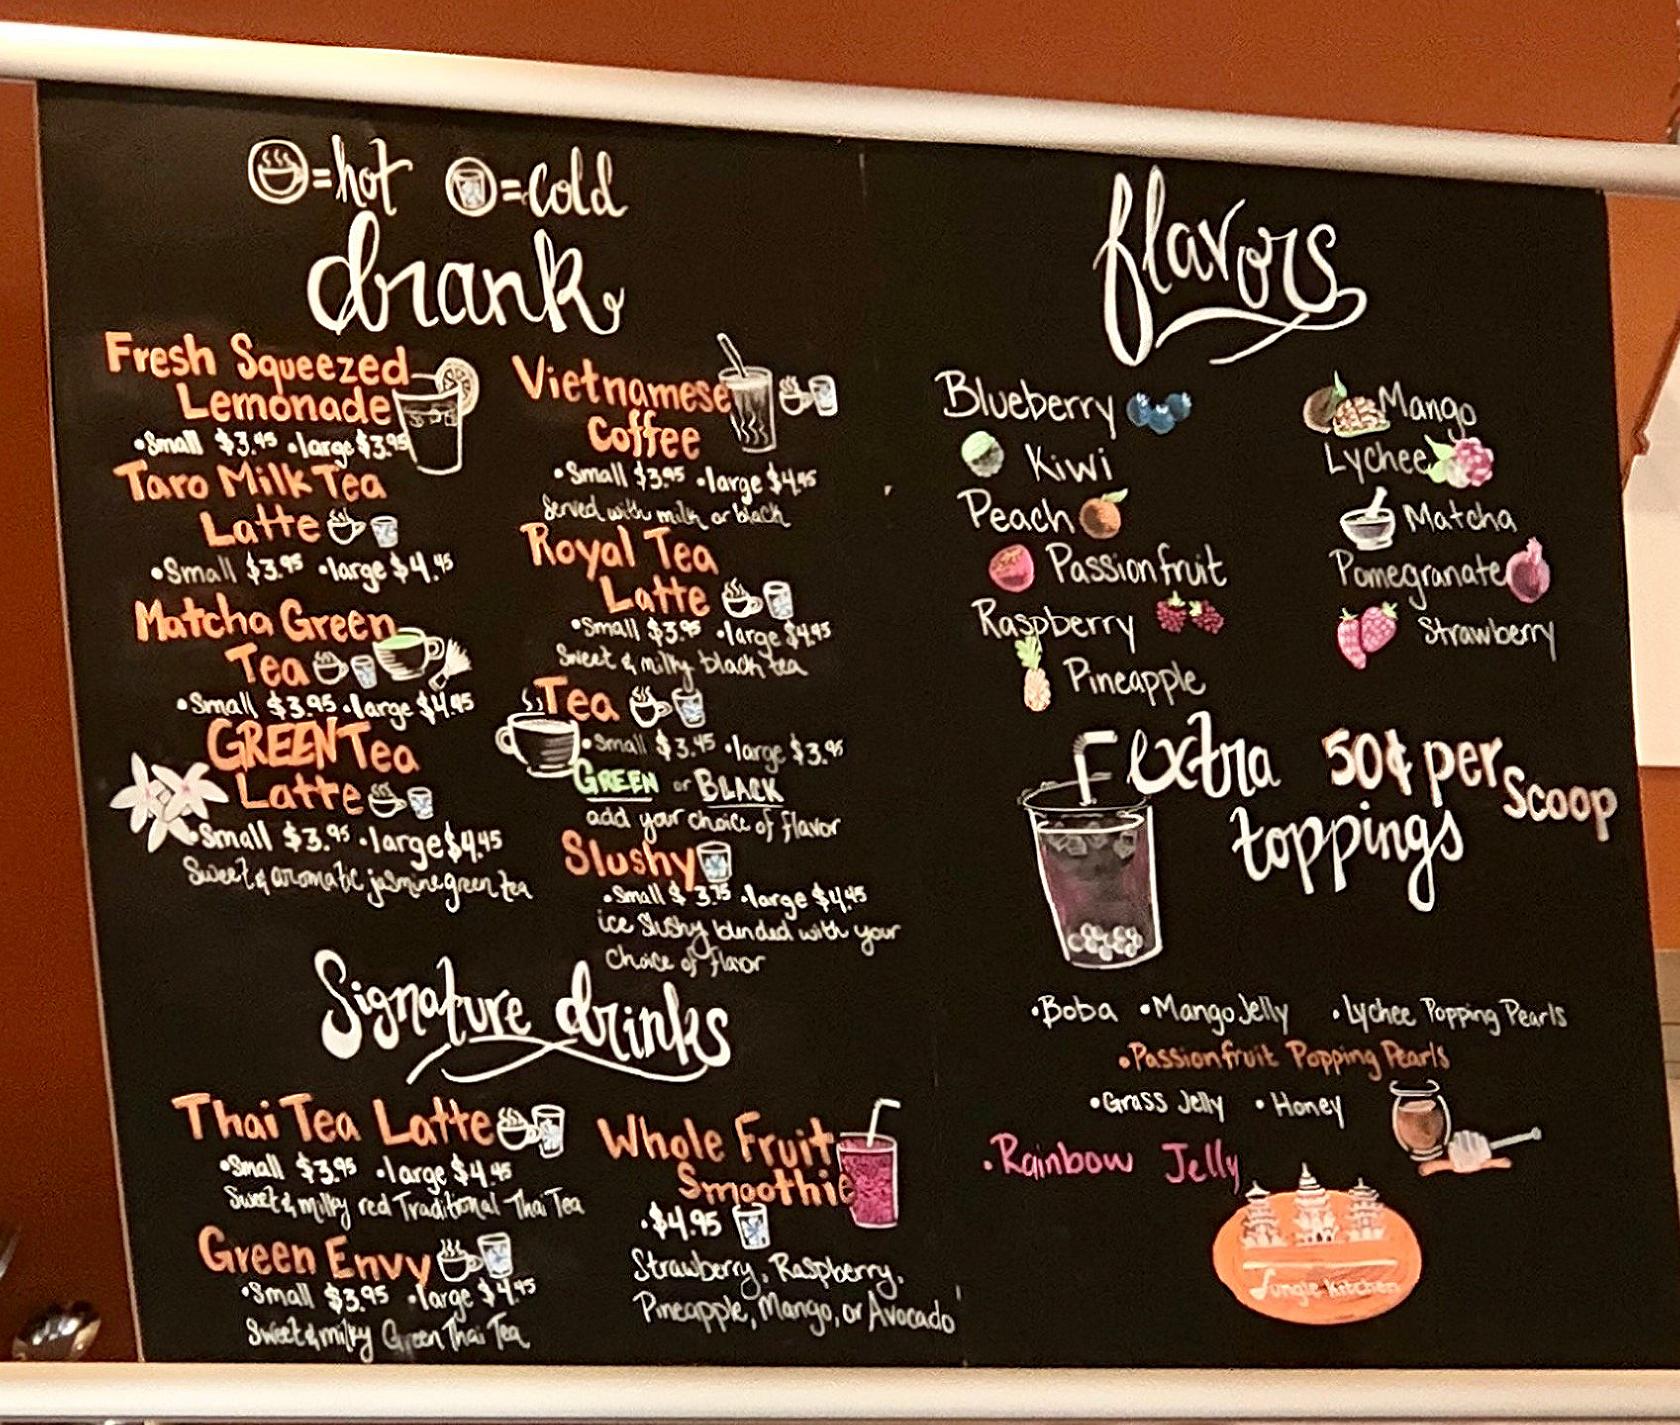 =hot =cold
drank
Fresh Squeezed
Lemonade
•Small $3.45 •large $3.95
Taro Milk Tea
Latte
•Small $3.95 •large $4.45
Matcha Green
Tea
•Small $3.95 •large $4.45
GREEN Tea
Latte
•Small $3.95 •large $4.45
Sweet & aromatic jasmine green tea
Vietnamese
Coffee
•Small $3.95 •large $4.45
Served with milk or black
Royal Tea
Latte
•Small $3.95 •large $4.45
Sweet & milky black tea
Tea
•Small $3.45 •large $3.95
GREEN or BLACK
add your choice of flavor
Slushy
•Small $3.75 •large $4.45
ice Slushy blended with your
choice of flavor
Signature drinks
Thai Tea Latte
•Small $3.95 •large $4.45
Sweet & milky red Traditional Thai Tea
Green Envy
•Small $3.95 •large $4.45
Sweet & milky Green Thai Tea
Whole Fruit
Smoothie
•$4.95
Strawberry, Raspberry,
Pineapple, Mango, or Avocado
flavors
Blueberry
Kiwi
Peach
Passionfruit
Raspberry
Pineapple
Mango
Lychee
Matcha
Pomegranate
Strawberry
extra 50¢ per Scoop
toppings
•Boba •Mango Jelly •Lychee Popping Pearls
•Passionfruit Popping Pearls
•Grass Jelly •Honey
•Rainbow Jelly
Jungle Kitchen